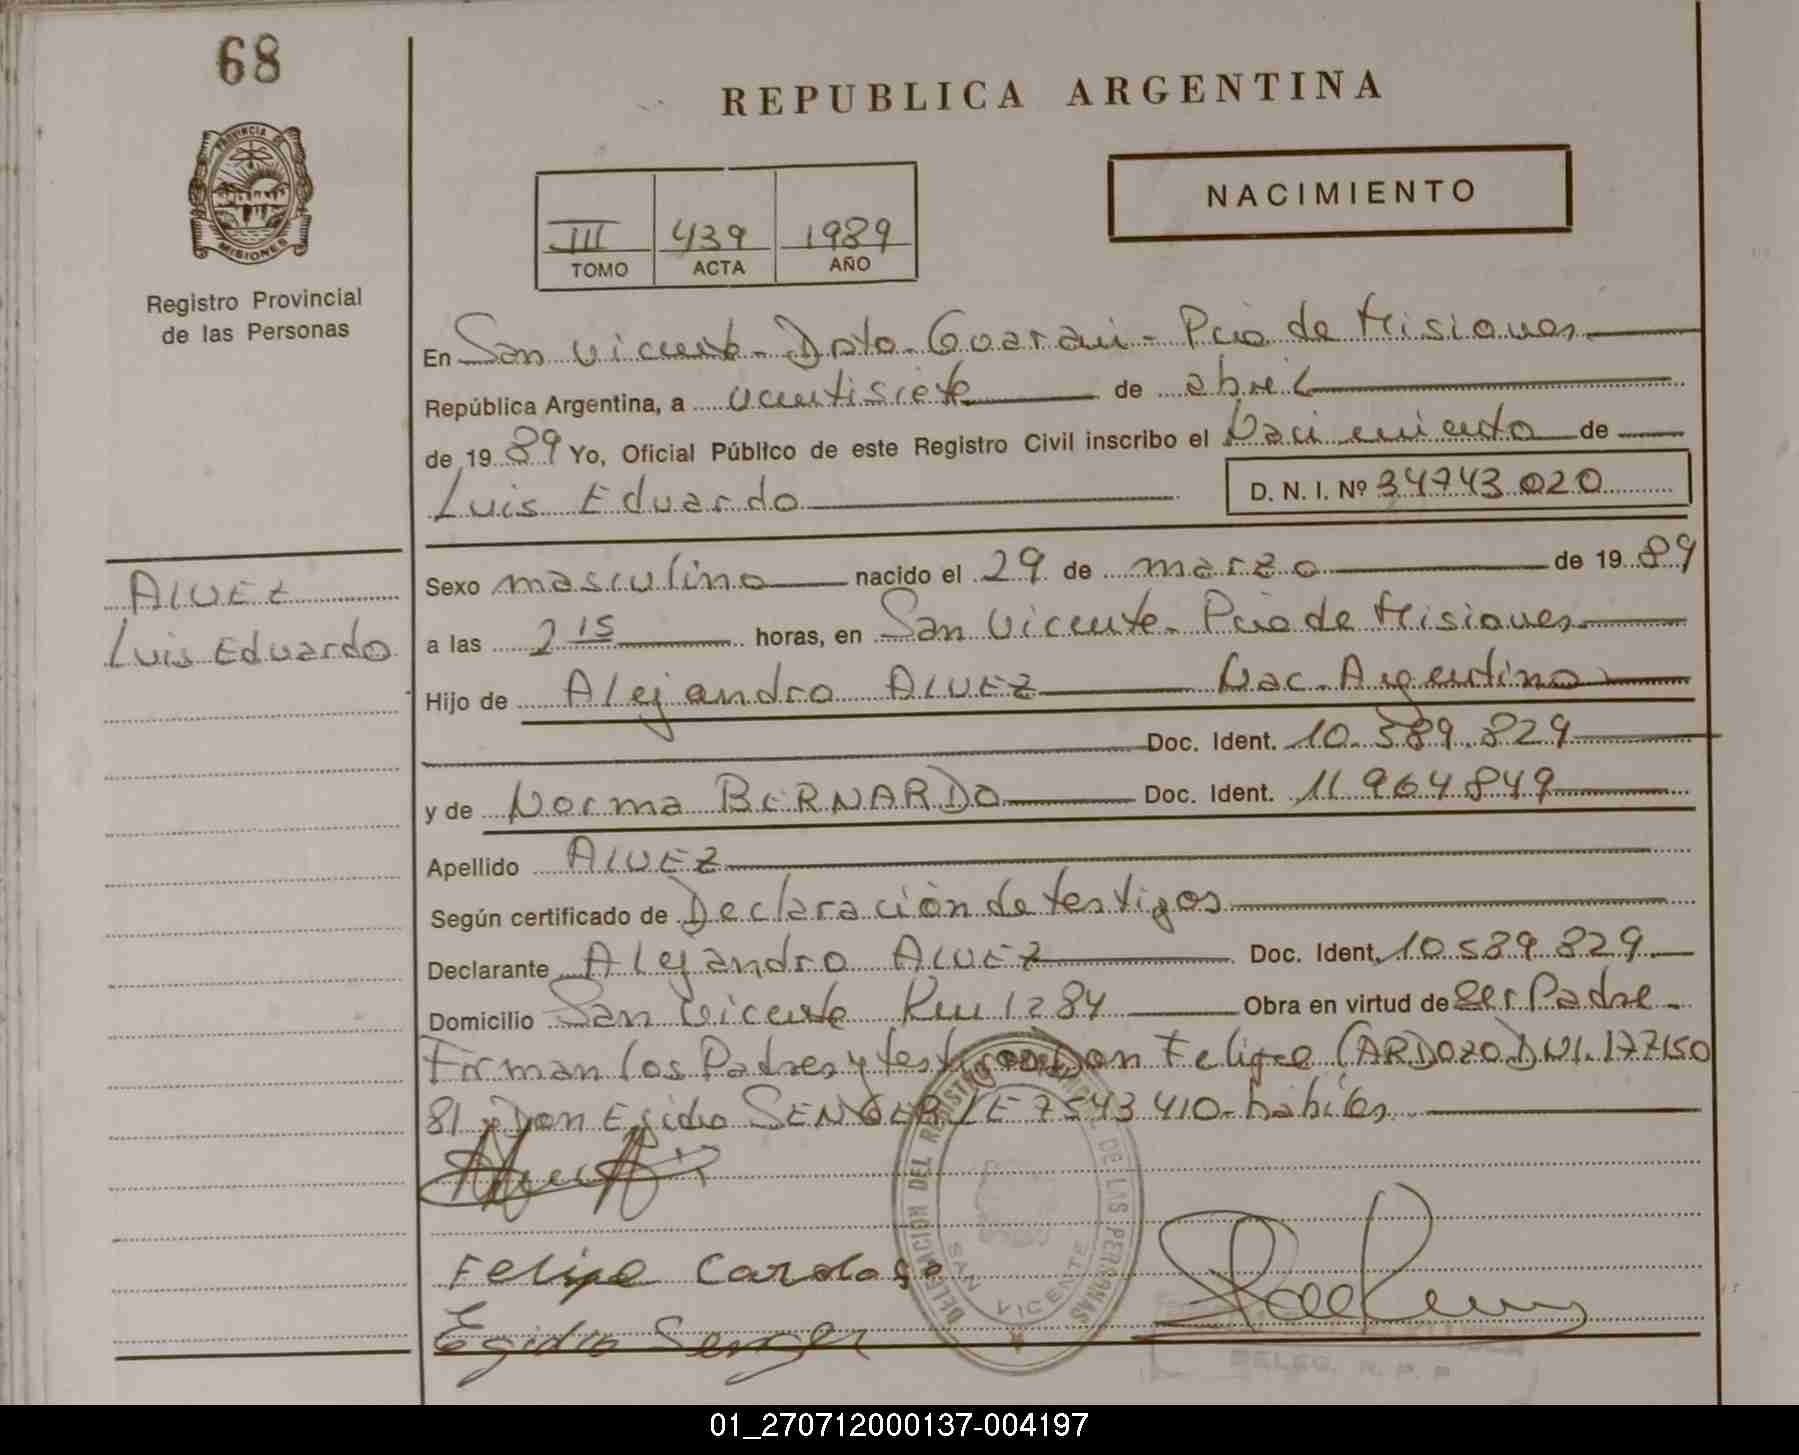 68
PROVINCIA DE
MISIONES
Registro Provincial
de las Personas
REPUBLICA ARGENTINA
NACIMIENTO
III 439 1989
TOMO ACTA AÑO
En San Vicente - Dpto. Guarani - Pcia de Misiones
República Argentina, a veintisiete de abril
de 1989 Yo, Oficial Público de este Registro Civil inscribo el Nacimiento de
Luis Eduardo D. N. I. Nº 34743.020
ALVEZ
Luis Eduardo
Sexo masculino nacido el 29 de marzo de 1989
a las 2 15 horas, en San Vicente - Pcia de Misiones
Hijo de Alejandro ALVEZ Nac. Argentino
Doc. Ident. 10.589.829
y de Norma BERNARDO Doc. Ident. 11.964.849
Apellido ALVEZ
Según certificado de Declaración de testigos
Declarante Alejandro ALVEZ Doc. Ident. 10.589.829
Domicilio San Vicente Km 1284 Obra en virtud de Ser Padre
Firman los Padres y testigos Don Felipe CARDOZO DNI. 177150
81 y Don Egidio SENGER LE 7543410 - habiles
Felipe Cardoso
Egidio Senger
DELEGACION DEL REGISTRO DE LAS PERSONAS
SAN VICENTE
DELEG. R. P. P
01_270712000137-004197